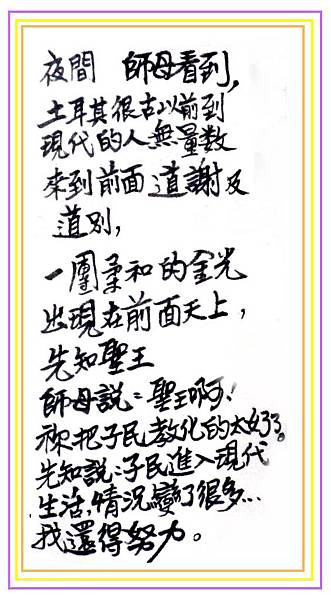 夜間　師母看到，
土耳其很古以前到
現代的人無量数
來到前面道謝及
道別，
一團柔和的金光
出現在前面天上，
先知聖王
師母說：聖王啊！
祢把子民教化的太好了。
先知說：子民進入現代
生活，情況變了很多…
我還得努力。